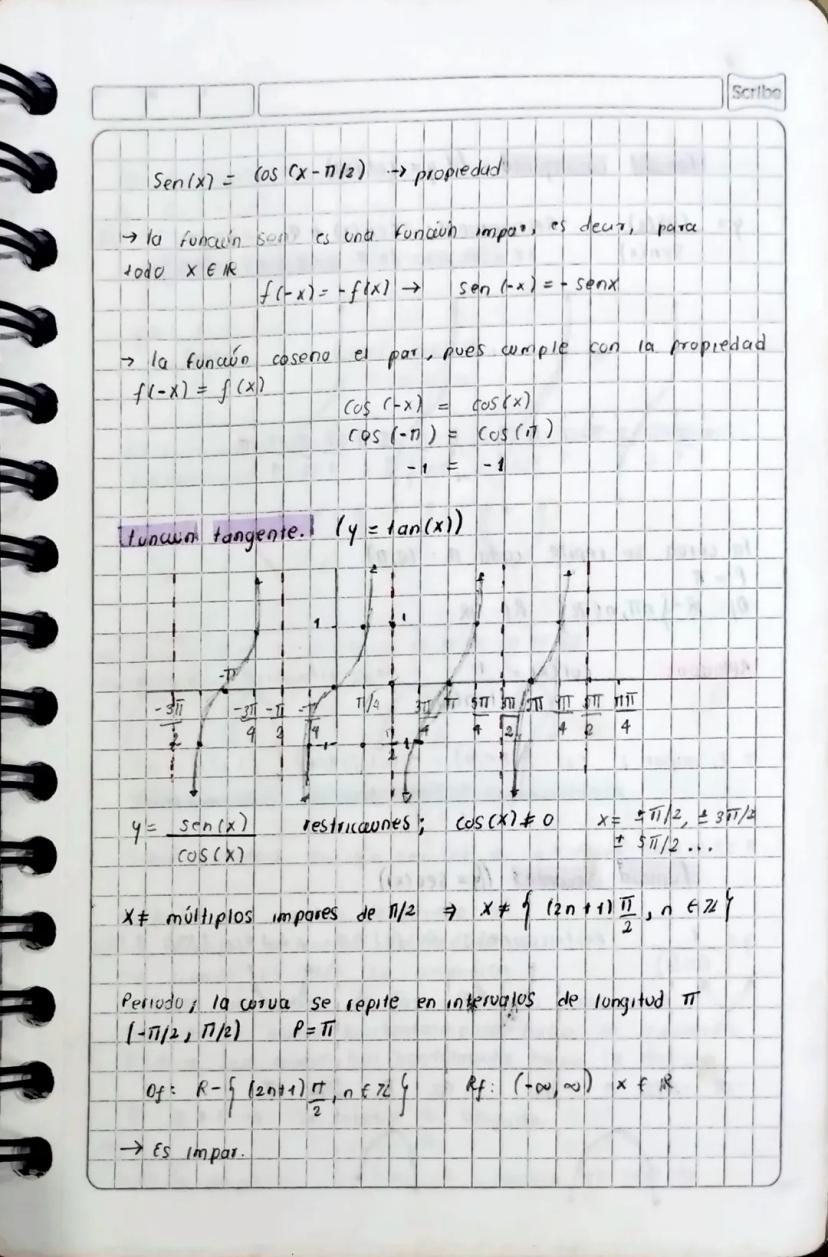 Scribe
Sen(x) = cos (x - π/2) → propiedad
→ la función seno es una función impar, es decir, para
todo x ∈ ℝ
f(-x) = -f(x) → sen (-x) = - senx
→ la función coseno el par, pues cumple con la propiedad
f(-x) = f(x)
cos (-x) = cos(x)
cos (-π) = cos(π)
-1 = -1
función tangente. (y = tan(x))
1 1
-π
-3π/2 -3π/4 -π/2 -π/4 π/4 π/2 3π/4 π 5π/4 3π/2 π/4 5π/2 11π/4
y = sen(x)/cos(x) restricciones; cos(x) ≠ 0 x = ±π/2, ± 3π/2
± 5π/2 ...
x ≠ múltiplos impares de π/2 ⇒ x ≠ { (2n+1) π/2, n ∈ ℤ }
Periodo; la curva se repite en intervalos de longitud π
(-π/2, π/2) P = π
Df: R - { (2n+1) π/2, n ∈ ℤ } Rf: (-∞, ∞) x ∈ ℝ
→ Es impar.